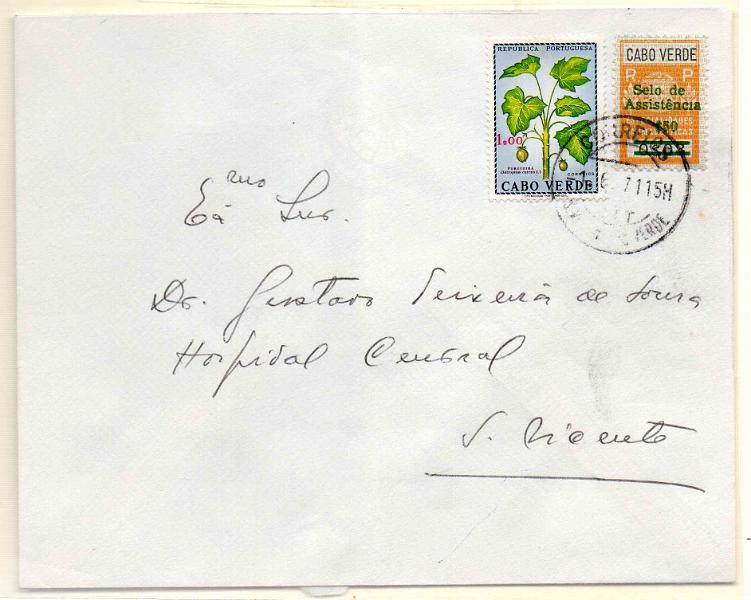 REPUBLICA PORTUGUESA
1.00
PURGUEIRA
CORREIOS
CABO VERDE
CABO VERDE
R P
Selo de
Assistência
$50
CORREIOS
7115H
C. VERDE
Exmo Snr.
Dr. Gustavo Teixeira de Sousa
Hospital Central
S. Vicente